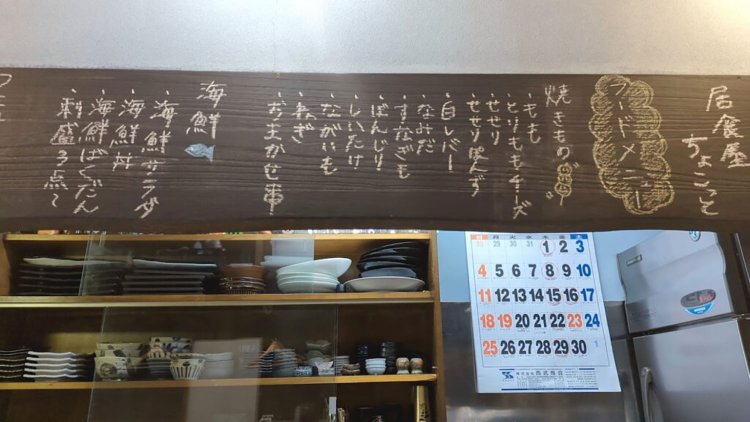 居食屋
ちょこっと
フードメニュー
焼きもの
・もも
・とりももチーズ
・せせり
・せせりぽんず
・白レバー
・なみだ
・すなぎも
・ぼんじり
・しいたけ
・ながいも
・ねぎ
・おまかせ串
海鮮
・海鮮サラダ
・海鮮丼
・海鮮ばくだん
・刺盛3点
日 月 火 水 木 金 土
28 29 30 31 1 2 3
4 5 6 7 8 9 10
11 12 13 14 15 16 17
18 19 20 21 22 23 24
25 26 27 28 29 30